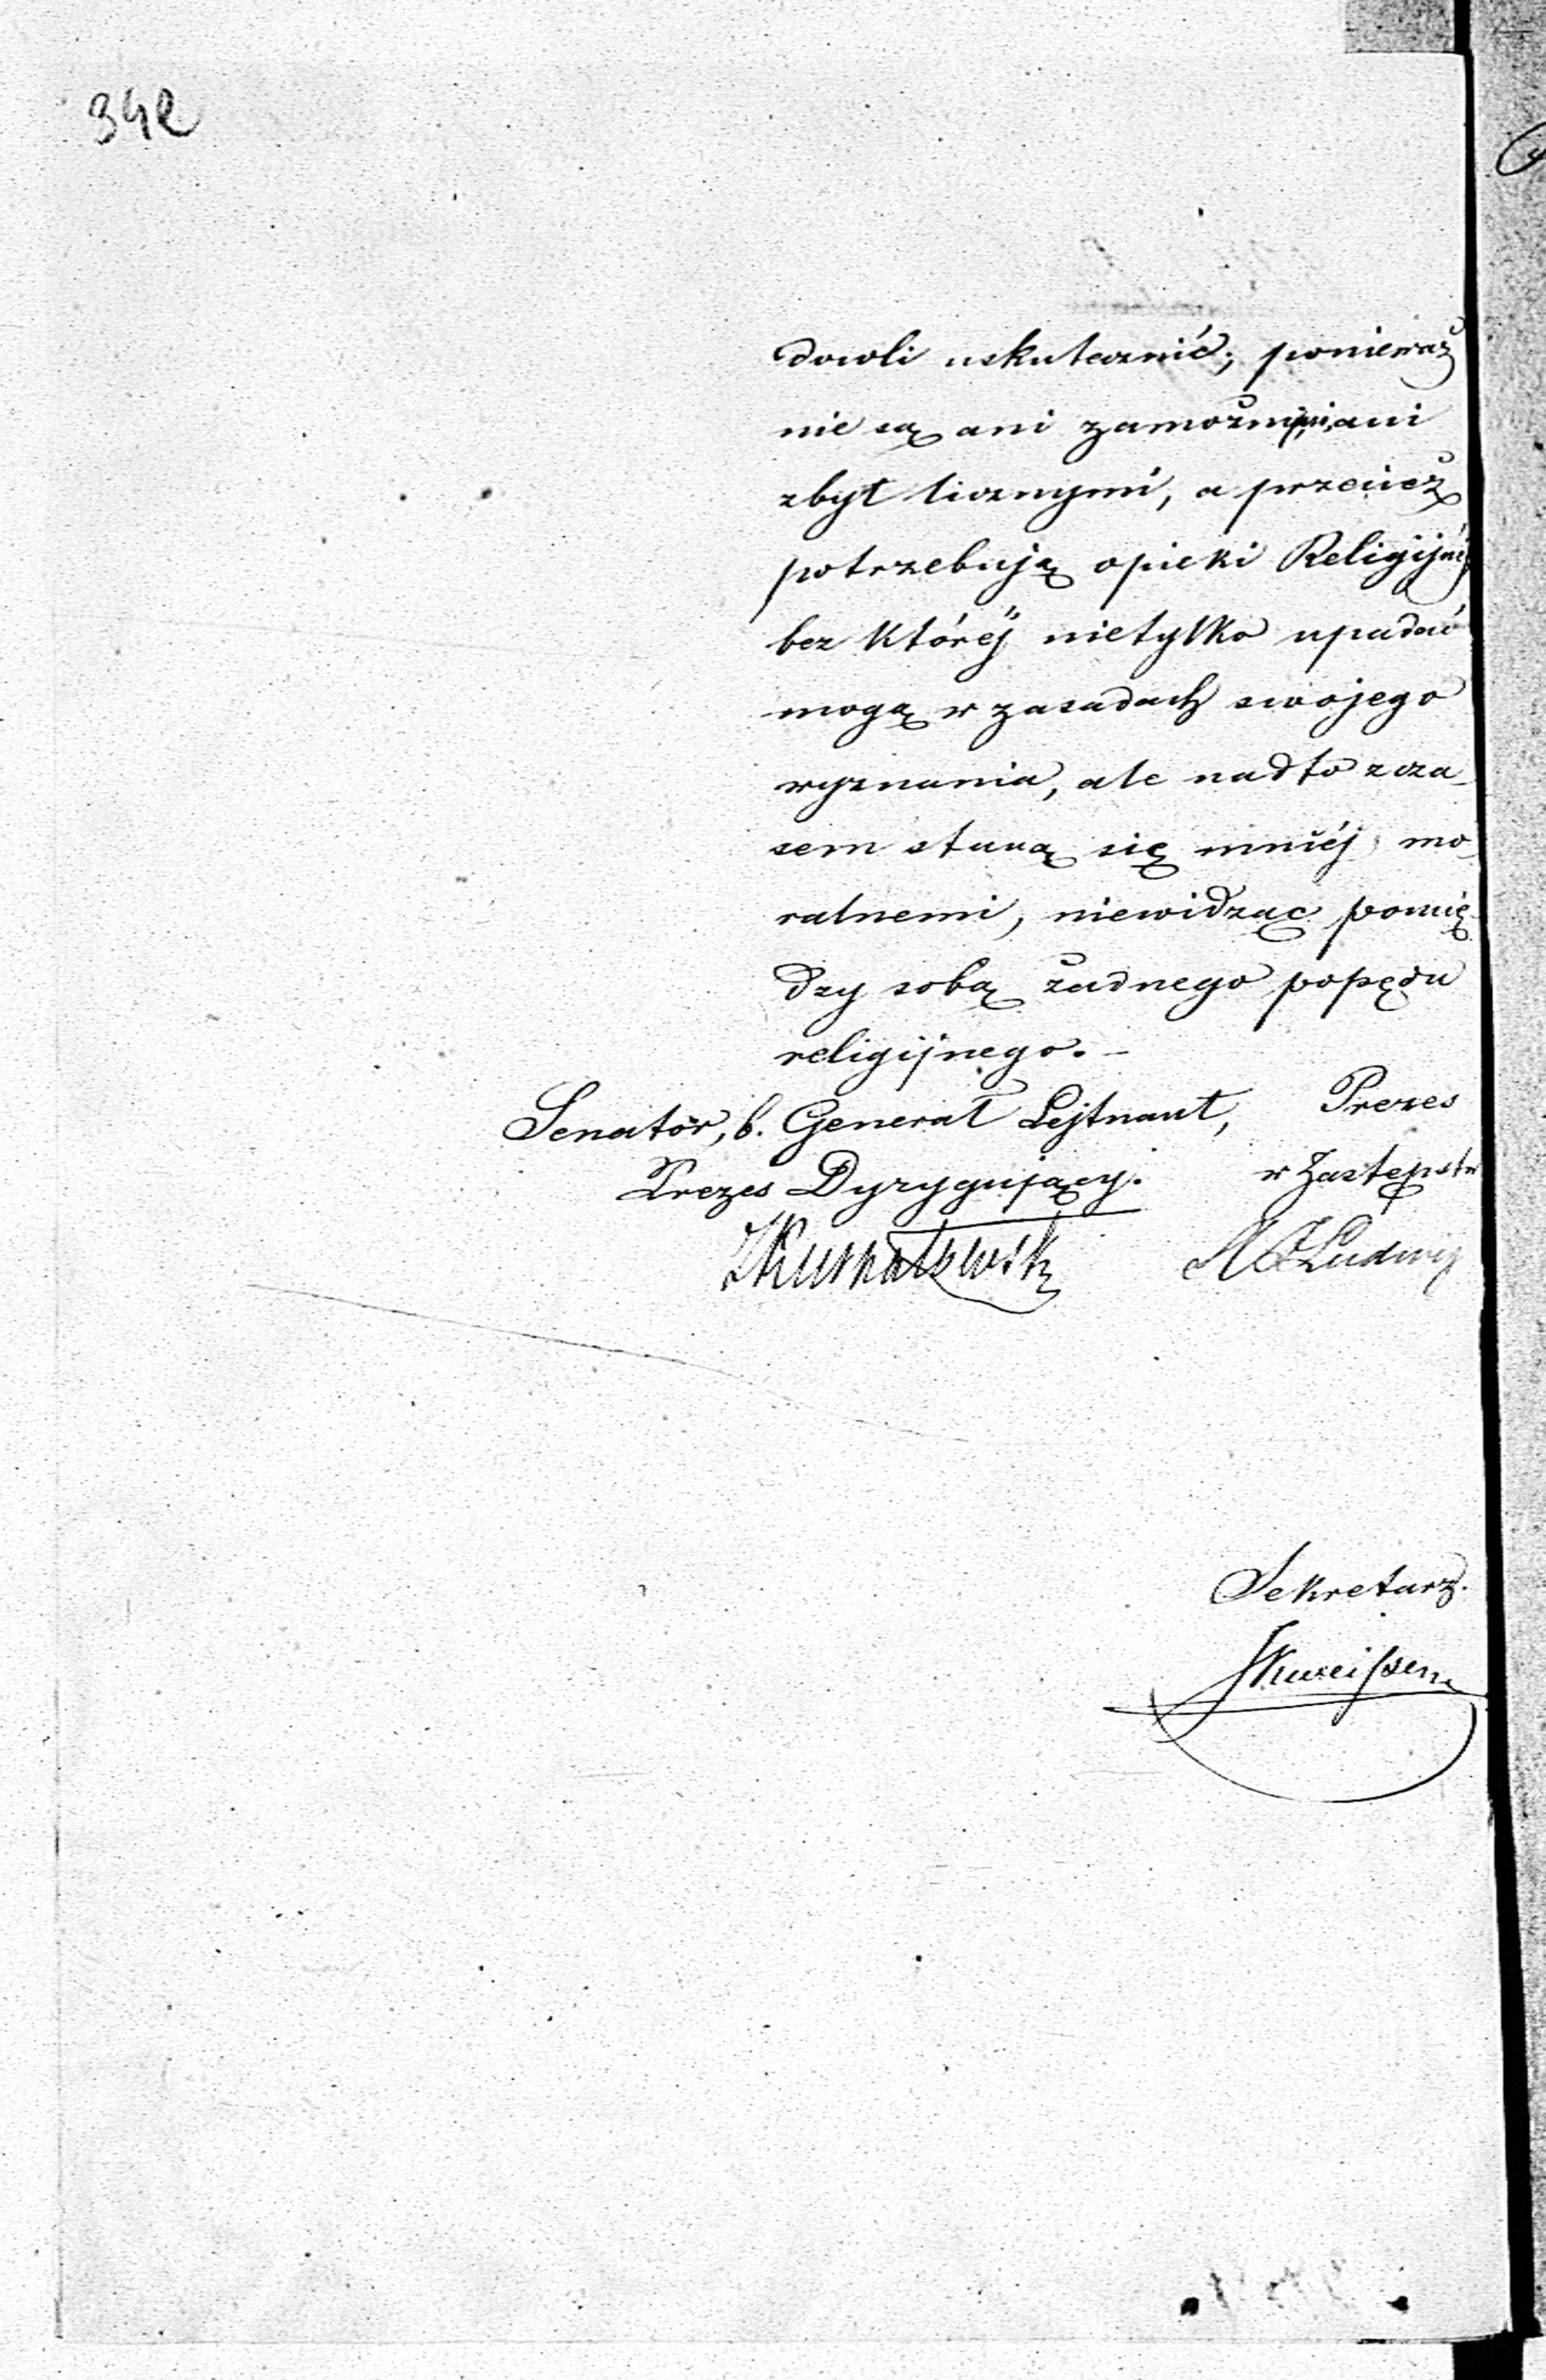 342
dowoli uskutecznić; ponieważ
nie są ani zamożnymi, ani
zbyt licznymi, a przecież
potrzebują opieki Religijnéj
bez któréj nietylko upadać
mogą w zasadach swojego
wyznania, ale nadto zcza_
sem staną się mniéj mo_
ralnemi, niewidząc pomię_
dzy sobą żadnego popędu
religijnego. –
Senator, b. Generał Lejtnant, Prezes
Prezes Dyrygujący. w Zastępstw
Ludwig
Sekretarz.